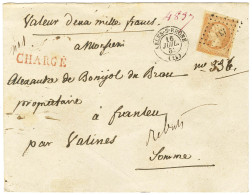 Valeur deux mille francs.
4897
a Monsieur
CHARGÉ
Alexandre de Bonijol du Brau
n° 336.
propriétaire
a franleu
par Valines
rebut
Somme